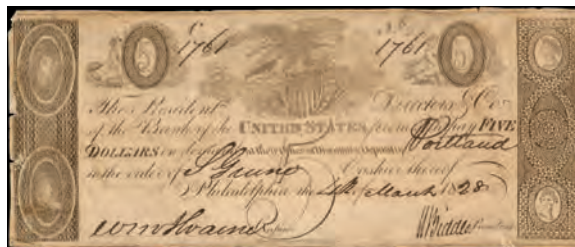 C
1761 1761
5 5
The President Directors & Co
of the Bank of the UNITED STATES promise to pay FIVE
DOLLARS on demand at their office of Discount & Deposit in Portland
to the order of Cashier thereof
Philadelphia the of March 1828
N Biddle President